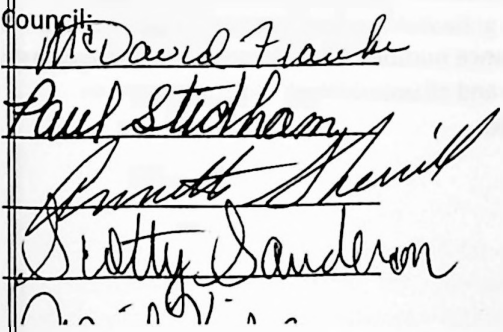 Council:
McDavid Franke
Paul Stidham
Annett Sherrill
Scotty Sanderson